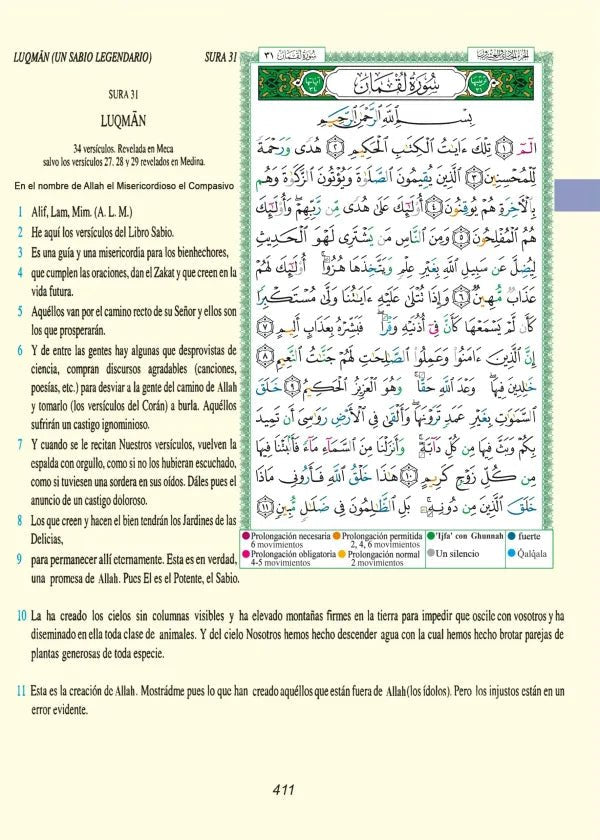 LUQMĀN (UN SABIO LEGENDARIO) SURA 31
SURA 31
LUQMĀN
34 versículos. Revelada en Meca
salvo los versículos 27. 28 y 29 revelados en Medina.
En el nombre de Allah el Misericordioso el Compasivo
1 Alif, Lam, Mim. (A. L. M.)
2 He aquí los versículos del Libro Sabio.
3 Es una guía y una misericordia para los bienhechores,
4 que cumplen las oraciones, dan el Zakat y que creen en la
vida futura.
5 Aquéllos van por el camino recto de su Señor y ellos son
los que prosperarán.
6 Y de entre las gentes hay algunas que desprovistas de
ciencia, compran discursos agradables (canciones,
poesías, etc.) para desviar a la gente del camino de Allah
y tomarlo (los versículos del Corán) a burla. Aquéllos
sufrirán un castigo ignominioso.
7 Y cuando se le recitan Nuestros versículos, vuelven la
espalda con orgullo, como si no los hubieran escuchado,
como si tuviesen una sordera en sus oídos. Dáles pues el
anuncio de un castigo doloroso.
8 Los que creen y hacen el bien tendrán los Jardines de las
Delicias,
9 para permanecer allí eternamente. Esta es en verdad,
una promesa de Allah. Pues El es el Potente, el Sabio.
سُورَةُ لُقْمَان ٣١
الجزء الحادي والعشرون
آياتها ٣٤
سُورَةُ لُقْمَان
ترتيبها ٣١
بِسْمِ اللَّهِ الرَّحْمَٰنِ الرَّحِيمِ
الٓمٓ ﴿١﴾ تِلْكَ ءَايَٰتُ الْكِتَٰبِ الْحَكِيمِ ﴿٢﴾ هُدًى وَرَحْمَةً
لِّلْمُحْسِنِينَ ﴿٣﴾ الَّذِينَ يُقِيمُونَ الصَّلَوٰةَ وَيُؤْتُونَ الزَّكَوٰةَ وَهُم
بِالْءَاخِرَةِ هُمْ يُوقِنُونَ ﴿٤﴾ أُو۟لَٰٓئِكَ عَلَىٰ هُدًى مِّن رَّبِّهِمْ ۖ وَأُو۟لَٰٓئِكَ
هُمُ الْمُفْلِحُونَ ﴿٥﴾ وَمِنَ النَّاسِ مَن يَشْتَرِى لَهْوَ الْحَدِيثِ
لِيُضِلَّ عَن سَبِيلِ اللَّهِ بِغَيْرِ عِلْمٍ وَيَتَّخِذَهَا هُزُوًا ۚ أُو۟لَٰٓئِكَ لَهُمْ
عَذَابٌ مُّهِينٌ ﴿٦﴾ وَإِذَا تُتْلَىٰ عَلَيْهِ ءَايَٰتُنَا وَلَّىٰ مُسْتَكْبِرًا
كَأَن لَّمْ يَسْمَعْهَا كَأَنَّ فِىٓ أُذُنَيْهِ وَقْرًا ۖ فَبَشِّرْهُ بِعَذَابٍ أَلِيمٍ ﴿٧﴾
إِنَّ الَّذِينَ ءَامَنُوا۟ وَعَمِلُوا۟ الصَّٰلِحَٰتِ لَهُمْ جَنَّٰتُ النَّعِيمِ ﴿٨﴾
خَٰلِدِينَ فِيهَا ۖ وَعْدَ اللَّهِ حَقًّا ۚ وَهُوَ الْعَزِيزُ الْحَكِيمُ ﴿٩﴾ خَلَقَ
السَّمَٰوَٰتِ بِغَيْرِ عَمَدٍ تَرَوْنَهَا ۖ وَأَلْقَىٰ فِى الْأَرْضِ رَوَٰسِىَ أَن تَمِيدَ
بِكُمْ وَبَثَّ فِيهَا مِن كُلِّ دَآبَّةٍ ۚ وَأَنزَلْنَا مِنَ السَّمَآءِ مَآءً فَأَنۢبَتْنَا فِيهَا
مِن كُلِّ زَوْجٍ كَرِيمٍ ﴿١٠﴾ هَٰذَا خَلْقُ اللَّهِ فَأَرُونِى مَاذَا
خَلَقَ الَّذِينَ مِن دُونِهِۦ ۚ بَلِ الظَّٰلِمُونَ فِى ضَلَٰلٍ مُّبِينٍ ﴿١١﴾
Prolongación necesaria
6 movimientos
Prolongación permitida
2, 4, 6 movimientos
'Ijfa' con Ghunnah
fuerte
Prolongación obligatoria
4-5 movimientos
Prolongación normal
2 movimientos
Un silencio
Qalqala
10 La ha creado los cielos sin columnas visibles y ha elevado montañas firmes en la tierra para impedir que oscile con vosotros y ha
diseminado en ella toda clase de animales. Y del cielo Nosotros hemos hecho descender agua con la cual hemos hecho brotar parejas de
plantas generosas de toda especie.
11 Esta es la creación de Allah. Mostrádme pues lo que han creado aquéllos que están fuera de Allah (los ídolos). Pero los injustos están en un
error evidente.
411